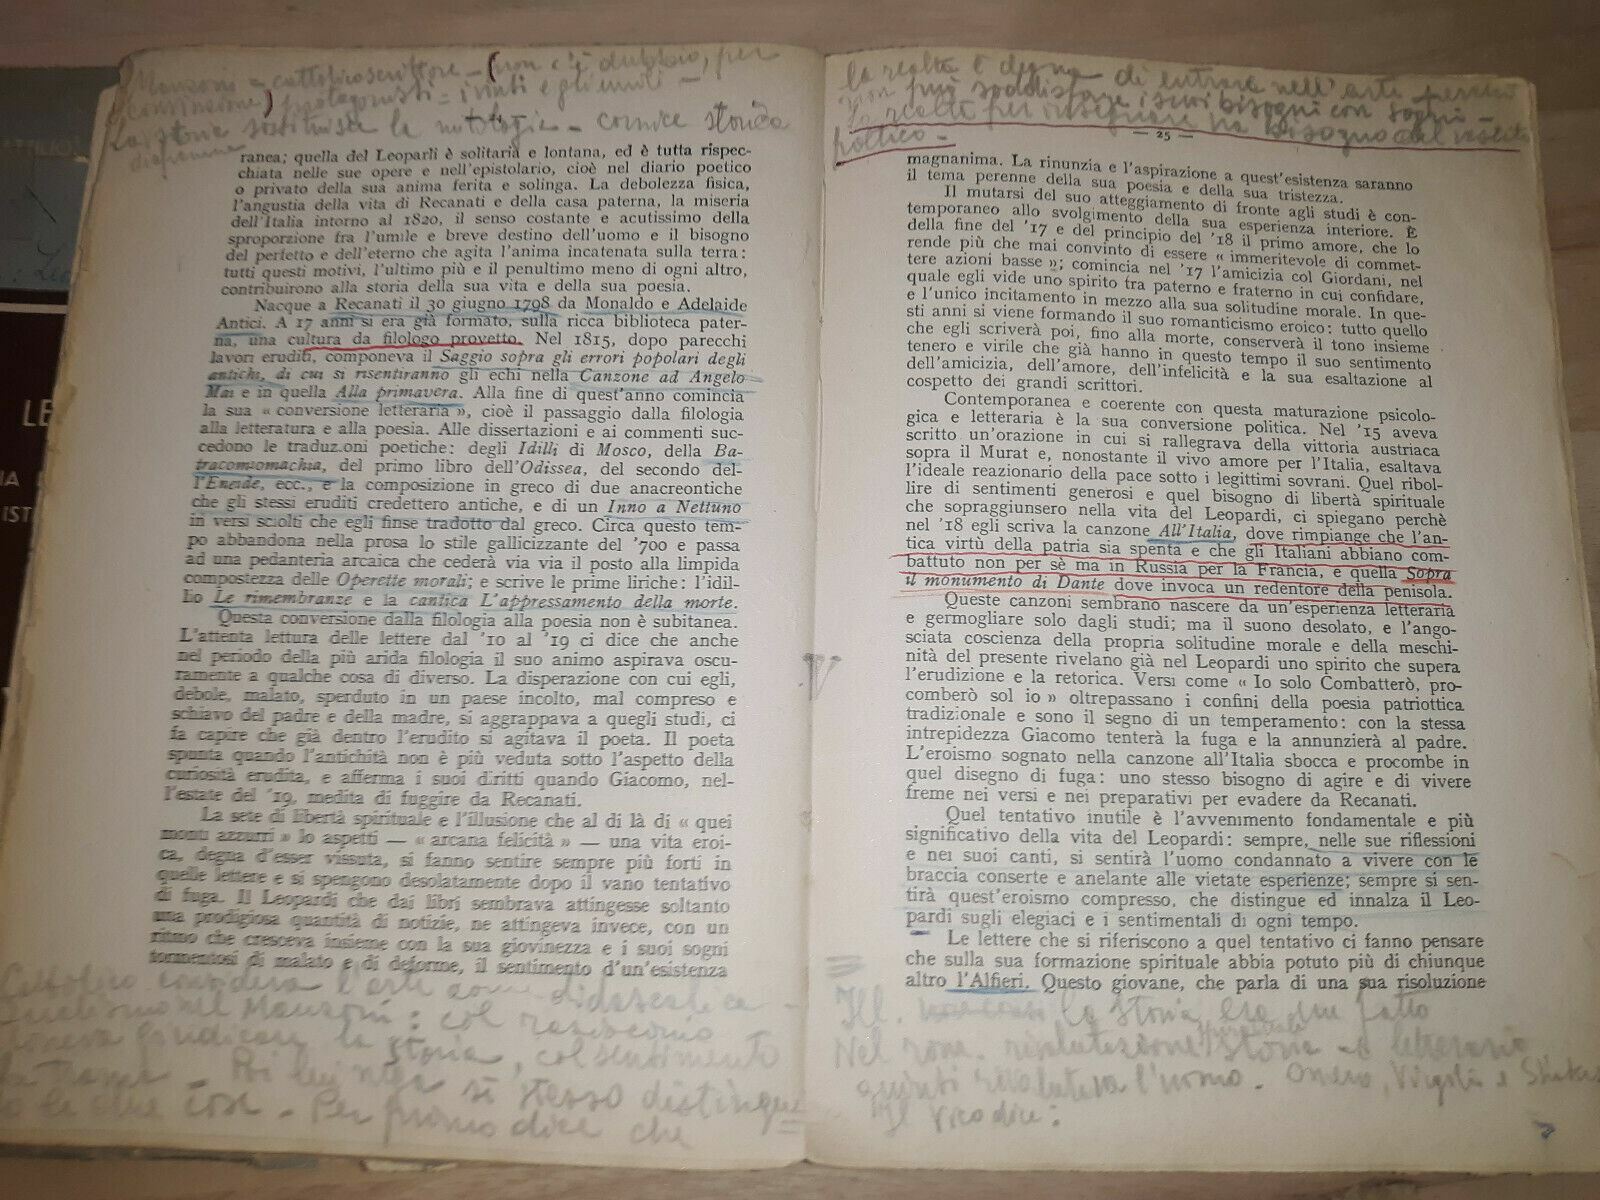 Manzoni = cattolico scrittore - (non c'è dubbio, per
convinzione) protagonisti = i vinti e gli umili -
La storia sostituisce la mitologia - cornice storica
ranea; quella del Leopardi è solitaria e lontana, ed è tutta rispec-
chiata nelle sue opere e nell'epistolario, cioè nel diario poetico
o privato della sua anima ferita e solinga. La debolezza fisica,
l'angustia della vita di Recanati e della casa paterna, la miseria
dell'Italia intorno al 1820, il senso costante e acutissimo della
sproporzione fra l'umile e breve destino dell'uomo e il bisogno
del perfetto e dell'eterno che agita l'anima incatenata sulla terra:
tutti questi motivi, l'ultimo più e il penultimo meno di ogni altro,
contribuirono alla storia della sua vita e della sua poesia.
Nacque a Recanati il 30 giugno 1798 da Monaldo e Adelaide
Antici. A 17 anni si era già formato, sulla ricca biblioteca pater-
na, una cultura da filologo provetto. Nel 1815, dopo parecchi
lavori eruditi, componeva il Saggio sopra gli errori popolari degli
antichi, di cui si risentiranno gli echi nella Canzone ad Angelo
Mai e in quella Alla primavera. Alla fine di quest'anno comincia
la sua « conversione letteraria », cioè il passaggio dalla filologia
alla letteratura e alla poesia. Alle dissertazioni e ai commenti suc-
cedono le traduz.oni poetiche: degli Idilli di Mosco, della Ba-
tracomiomachia, del primo libro dell'Odissea, del secondo del-
l'Eneide, ecc., e la composizione in greco di due anacreontiche
che gli stessi eruditi credettero antiche, e di un Inno a Nettuno
in versi sciolti che egli finse tradotto dal greco. Circa questo tem-
po abbandona nella prosa lo stile gallicizzante del '700 e passa
ad una pedanteria arcaica che cederà via via il posto alla limpida
compostezza delle Operette morali; e scrive le prime liriche: l'idil-
lio Le rimembranze e la cantica L'appressamento della morte.
Questa conversione dalla filologia alla poesia non è subitanea.
L'attenta lettura delle lettere dal '10 al '19 ci dice che anche
nel periodo della più arida filologia il suo animo aspirava oscu-
ramente a qualche cosa di diverso. La disperazione con cui egli,
debole, malato, sperduto in un paese incolto, mal compreso e
schiavo del padre e della madre, si aggrappava a quegli studi, ci
fa capire che già dentro l'erudito si agitava il poeta. Il poeta
spunta quando l'antichità non è più veduta sotto l'aspetto della
curiosità erudita, e afferma i suoi diritti quando Giacomo, nel-
l'estate del '19, medita di fuggire da Recanati.
La sete di libertà spirituale e l'illusione che al di là di « quei
monti azzurri » lo aspetti — « arcana felicità » — una vita eroi-
ca, degna d'esser vissuta, si fanno sentire sempre più forti in
quelle lettere e si spengono desolatamente dopo il vano tentativo
di fuga. Il Leopardi che dai libri sembrava attingesse soltanto
una prodigiosa quantità di notizie, ne attingeva invece, con un
ritmo che cresceva insieme con la sua giovinezza e i suoi sogni
tormentosi di malato e di deforme, il sentimento d'un'esistenza
Cattolico considera l'arte come didascalica -
Qualismo nel Manzoni: col raziocinio
voleva giudicare la storia, col sentimento
la trama - Poi lui nega si stesso distingue
le due cose - Per primo dice che
la realtà è degna di entrare nell'arte perché
non può soddisfare i suoi bisogni con sogni -
La realtà per insegnare ha bisogno del vestito
poetico -
— 25 —
magnanima. La rinunzia e l'aspirazione a quest'esistenza saranno
il tema perenne della sua poesia e della sua tristezza.
Il mutarsi del suo atteggiamento di fronte agli studi è con-
temporaneo allo svolgimento della sua esperienza interiore. È
della fine del '17 e del principio del '18 il primo amore, che lo
rende più che mai convinto di essere « immeritevole di commet-
tere azioni basse »; comincia nel '17 l'amicizia col Giordani, nel
quale egli vide uno spirito tra paterno e fraterno in cui confidare,
e l'unico incitamento in mezzo alla sua solitudine morale. In que-
sti anni si viene formando il suo romanticismo eroico: tutto quello
che egli scriverà poi, fino alla morte, conserverà il tono insieme
tenero e virile che già hanno in questo tempo il suo sentimento
dell'amicizia, dell'amore, dell'infelicità e la sua esaltazione al
cospetto dei grandi scrittori.
Contemporanea e coerente con questa maturazione psicolo-
gica e letteraria è la sua conversione politica. Nel '15 aveva
scritto un'orazione in cui si rallegrava della vittoria austriaca
sopra il Murat e, nonostante il vivo amore per l'Italia, esaltava
l'ideale reazionario della pace sotto i legittimi sovrani. Quel ribol-
lire di sentimenti generosi e quel bisogno di libertà spirituale
che sopraggiunsero nella vita del Leopardi, ci spiegano perchè
nel '18 egli scriva la canzone All'Italia, dove rimpiange che l'an-
tica virtù della patria sia spenta e che gli Italiani abbiano com-
battuto non per sè ma in Russia per la Francia, e quella Sopra
il monumento di Dante dove invoca un redentore della penisola.
Queste canzoni sembrano nascere da un'esperienza letteraria
e germogliare solo dagli studi; ma il suono desolato, e l'ango-
sciata coscienza della propria solitudine morale e della meschi-
nità del presente rivelano già nel Leopardi uno spirito che supera
l'erudizione e la retorica. Versi come « Io solo Combatterò, pro-
comberò sol io » oltrepassano i confini della poesia patriottica
tradizionale e sono il segno di un temperamento: con la stessa
intrepidezza Giacomo tenterà la fuga e la annunzierà al padre.
L'eroismo sognato nella canzone all'Italia sbocca e procombe in
quel disegno di fuga: uno stesso bisogno di agire e di vivere
freme nei versi e nei preparativi per evadere da Recanati.
Quel tentativo inutile è l'avvenimento fondamentale e più
significativo della vita del Leopardi: sempre, nelle sue riflessioni
e nei suoi canti, si sentirà l'uomo condannato a vivere con le
braccia conserte e anelante alle vietate esperienze; sempre si sen-
tirà quest'eroismo compresso, che distingue ed innalza il Leo-
pardi sugli elegiaci e i sentimentali di ogni tempo.
Le lettere che si riferiscono a quel tentativo ci fanno pensare
che sulla sua formazione spirituale abbia potuto più di chiunque
altro l'Alfieri. Questo giovane, che parla di una sua risoluzione
Ill. la storia era un fatto
Nel rom. rivalutazione spirituale storia - e letteraria
quindi rivalutava l'uomo. Omero, Virgilio e
Il Vico dice: